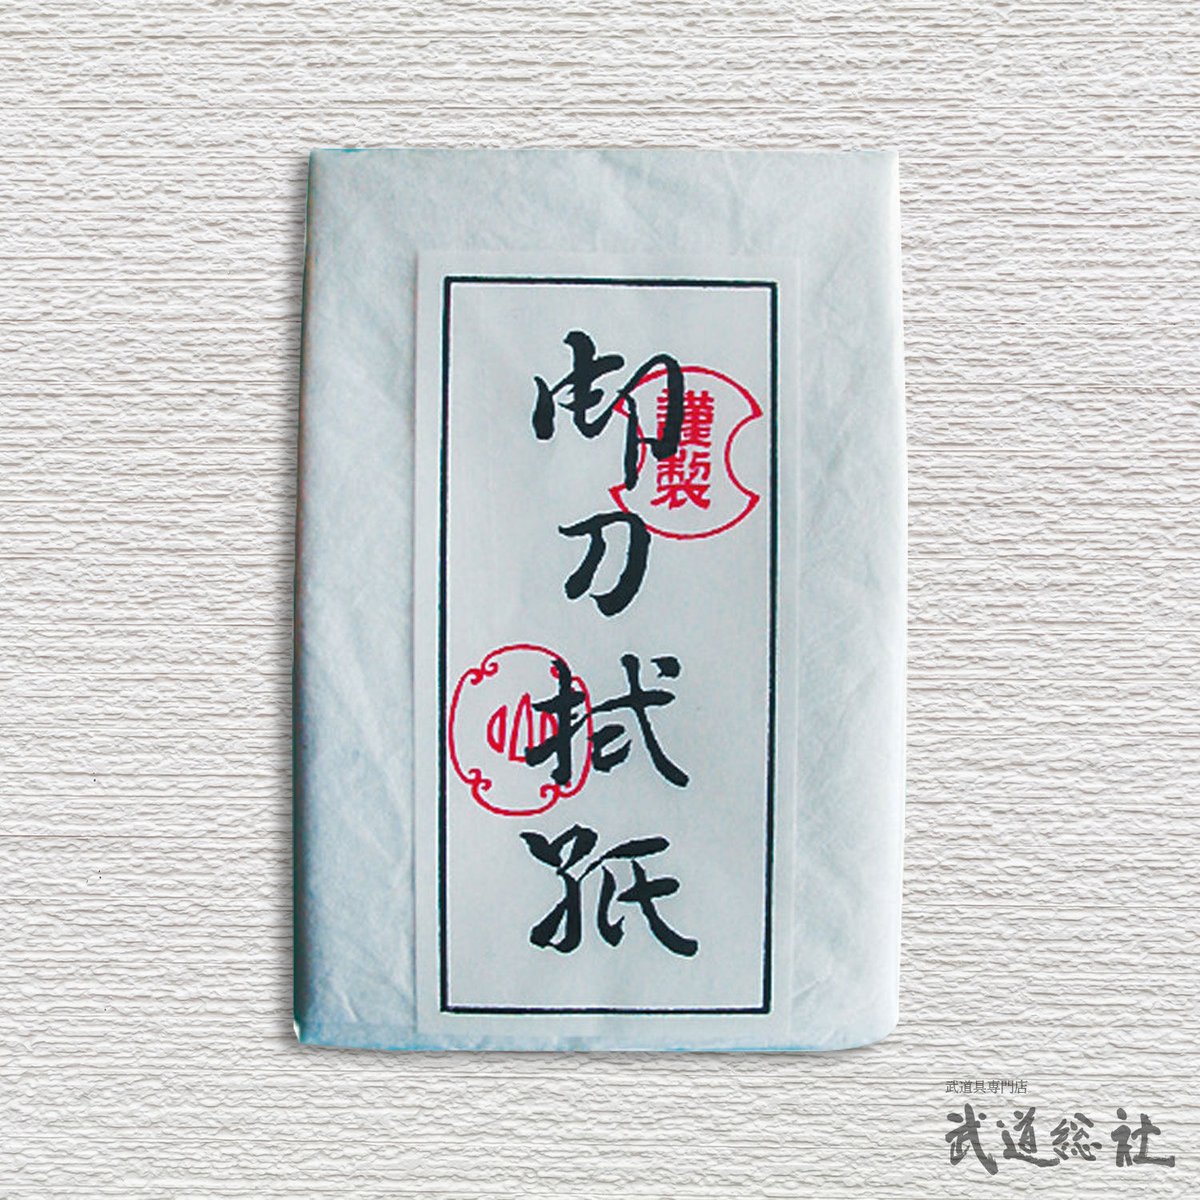 御刀拭紙
謹製
武道具専門店
武道総社